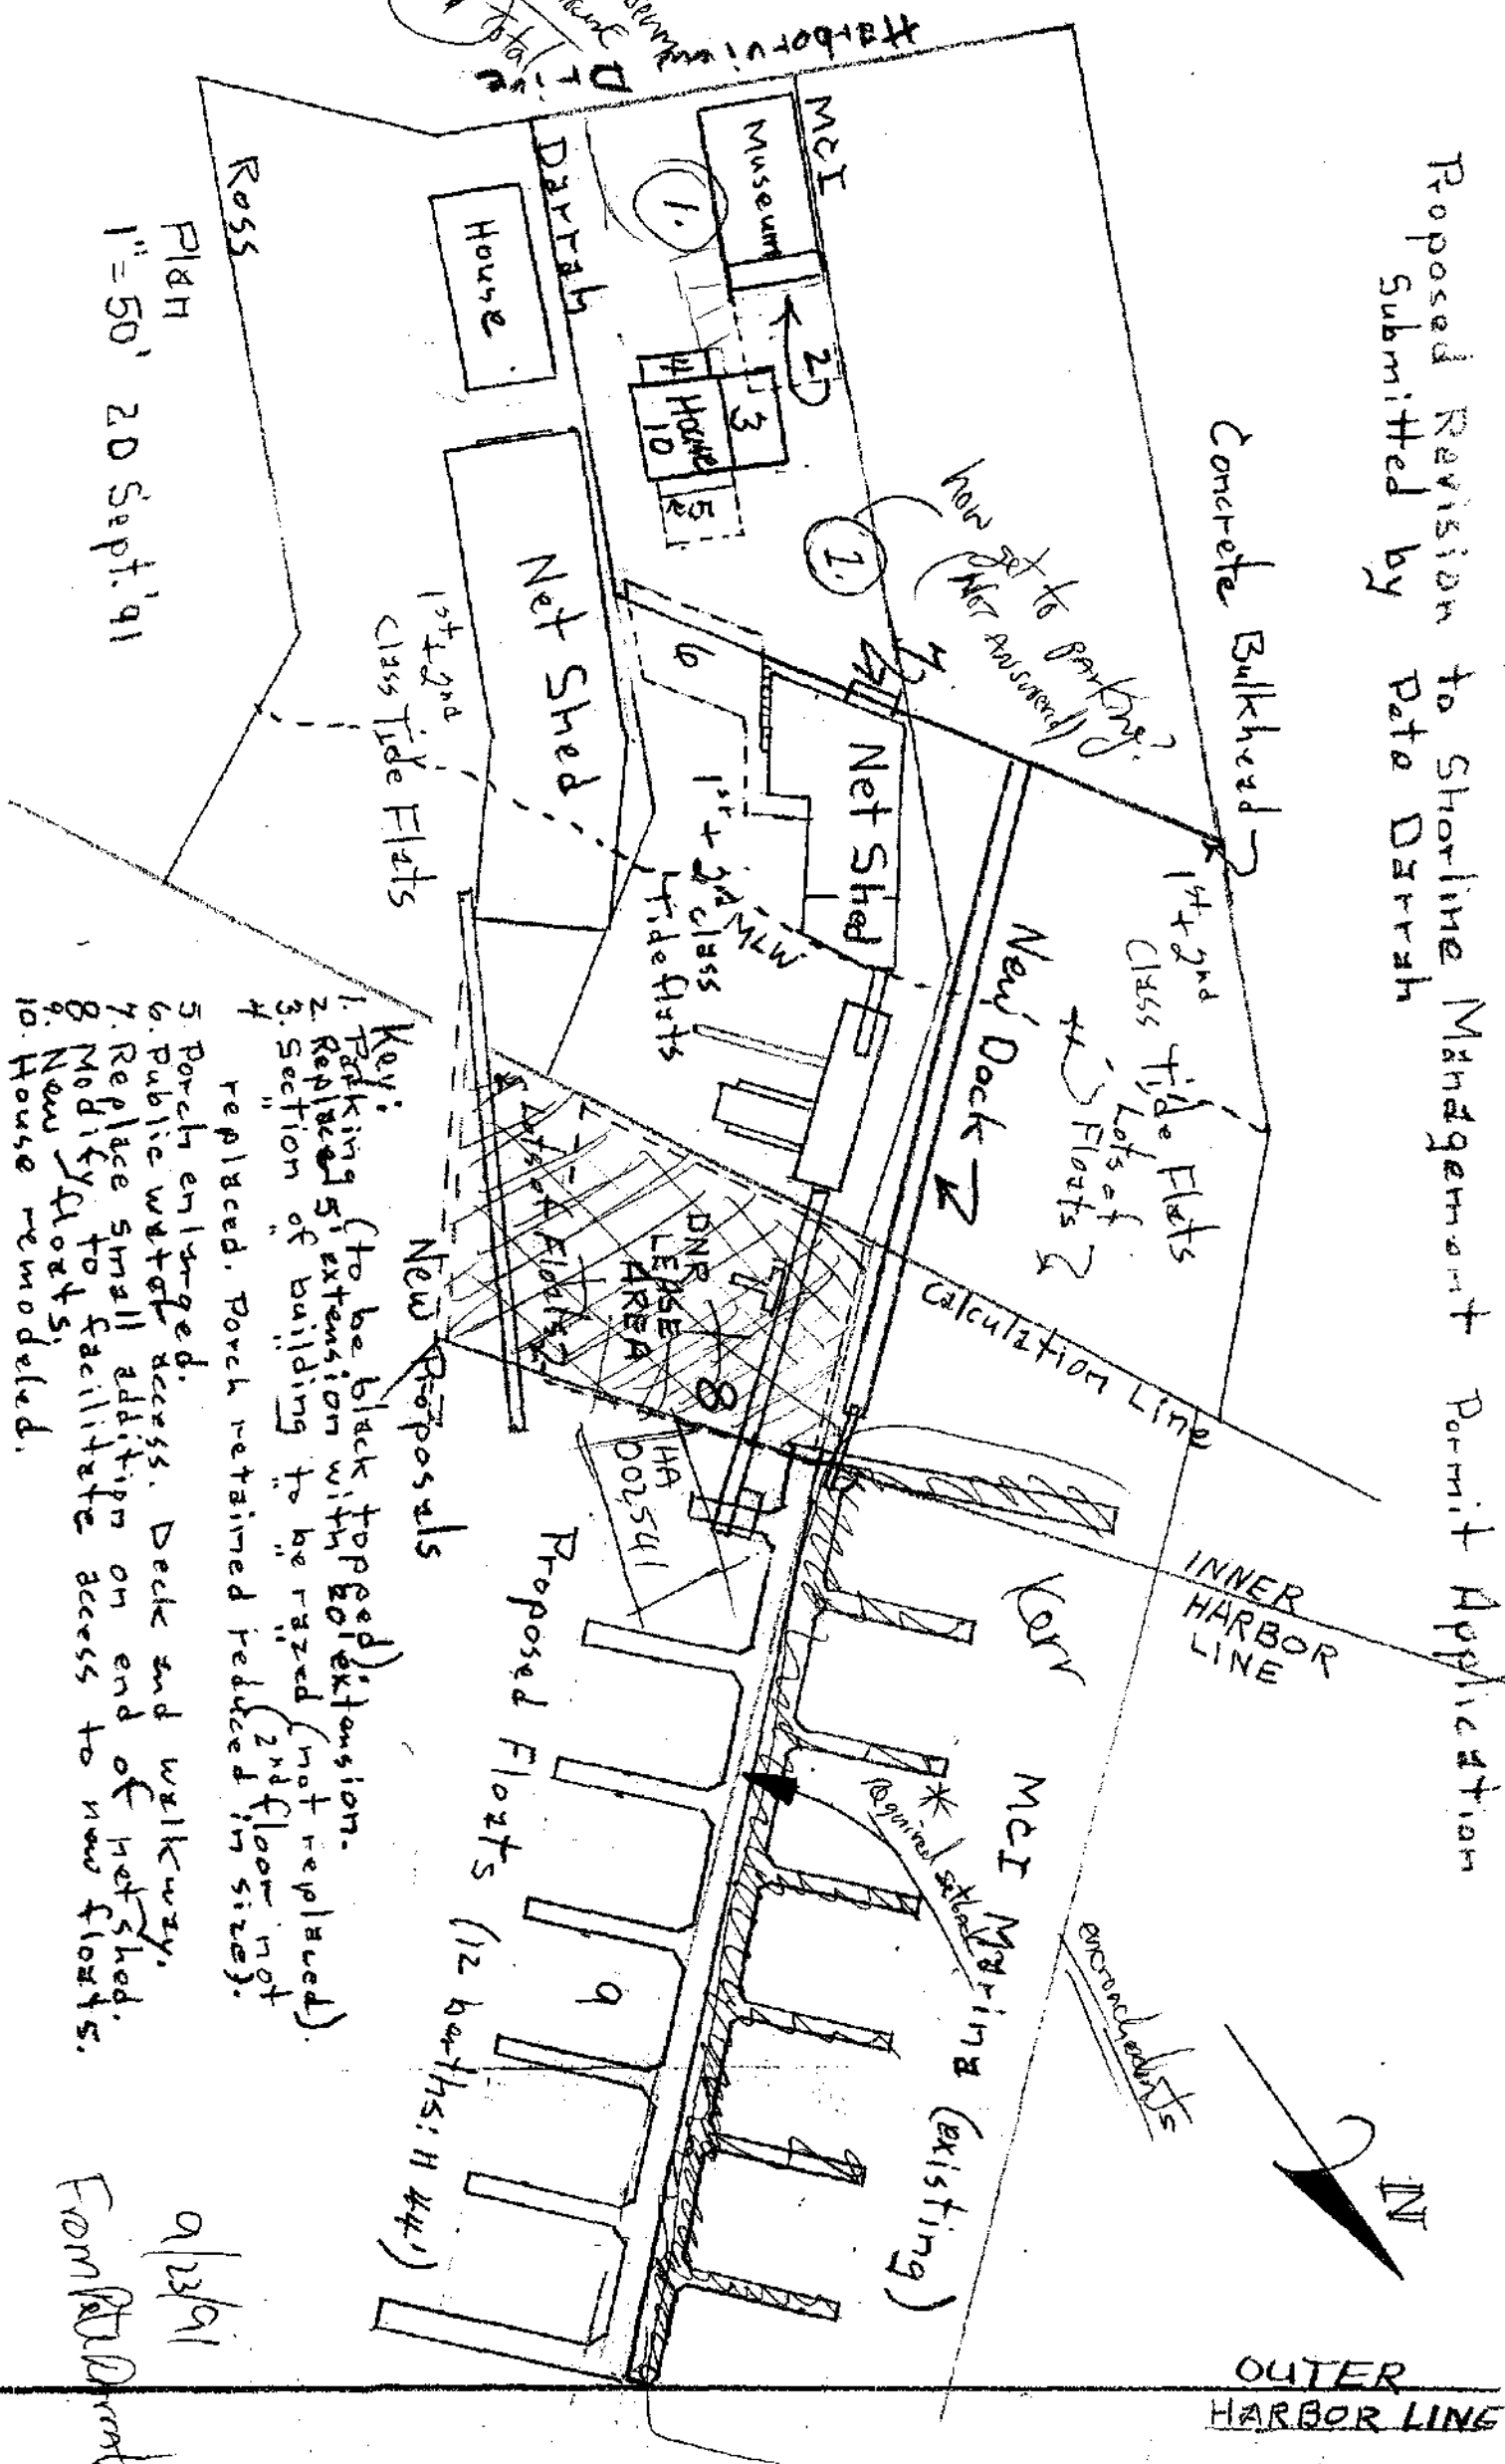 Proposed Revision to Shorline Mangement Permit Application
Submitted by Pete Darrah
Concrete Bulkhead
Harborview Drive
MCI
Museum
1.
2
3
4
House
10
5
Darrah
House
Ross
Plan
1"=50' 20 Sept. '91
how get to parking?
(Not answered)
1.
7
6
Net Shed
Net Shed
1st + 2nd
Class Tide Flats
1st + 2nd class
Tide flats
MLW
New Dock
1st + 2nd
Class Tide Flats
Lots of
Floats
Calculation Line
Lots of Floats
DNR
LEASE
AREA
8
HA
002541
New Proposals
INNER
HARBOR
LINE
Kerr
MCI Marina (existing)
* required setback
encroachments
Proposed Floats (12 berths: 11 44')
9
N
OUTER
HARBOR LINE
Key:
1. Parking (to be black topped).
2. Replace 5' extension with 20' extension.
3. Section of building to be razed (not replaced).
4 " " " " " " (2nd floor not
replaced. Porch retained reduced in size).
5. Porch enlarged.
6. Public water access. Deck and walkway.
7. Replace small addition on end of net shed.
8. Modify to facilitate access to new floats.
9. New floats.
10. House remodeled.
9/23/91
From Pete Darrah